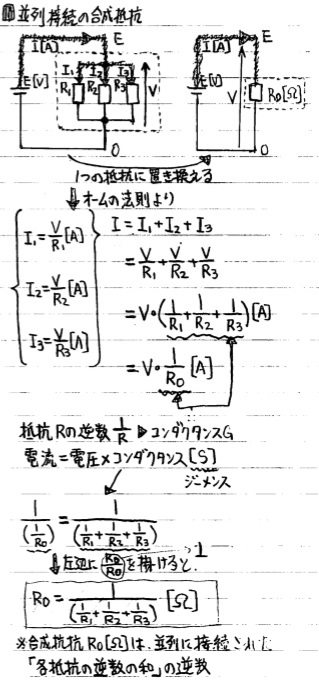 回並列接続の合成抵抗
I[A] E I[A] E
I₁ I₂ I₃
E[V] R₁ R₂ R₃ V E[V] V R₀[Ω]
0 0
1つの抵抗に置き換える
⇓オームの法則より
I₁=V/R₁[A] I=I₁+I₂+I₃
=V/R₁+V/R₂+V/R₃
I₂=V/R₂[A]
=V・(1/R₁+1/R₂+1/R₃)[A]
I₃=V/R₃[A]
=V・1/R₀[A]
抵抗Rの逆数1/R ▶コンダクタンスG
電流=電圧×コンダクタンス[S]
ジーメンス
1/(1/R₀)=1/(1/R₁+1/R₂+1/R₃)
⇓左辺にR₀/R₀を掛けると∵1
R₀=1/(1/R₁+1/R₂+1/R₃)[Ω]
※合成抵抗R₀[Ω]は、並列に接続された
「各抵抗の逆数の和」の逆数